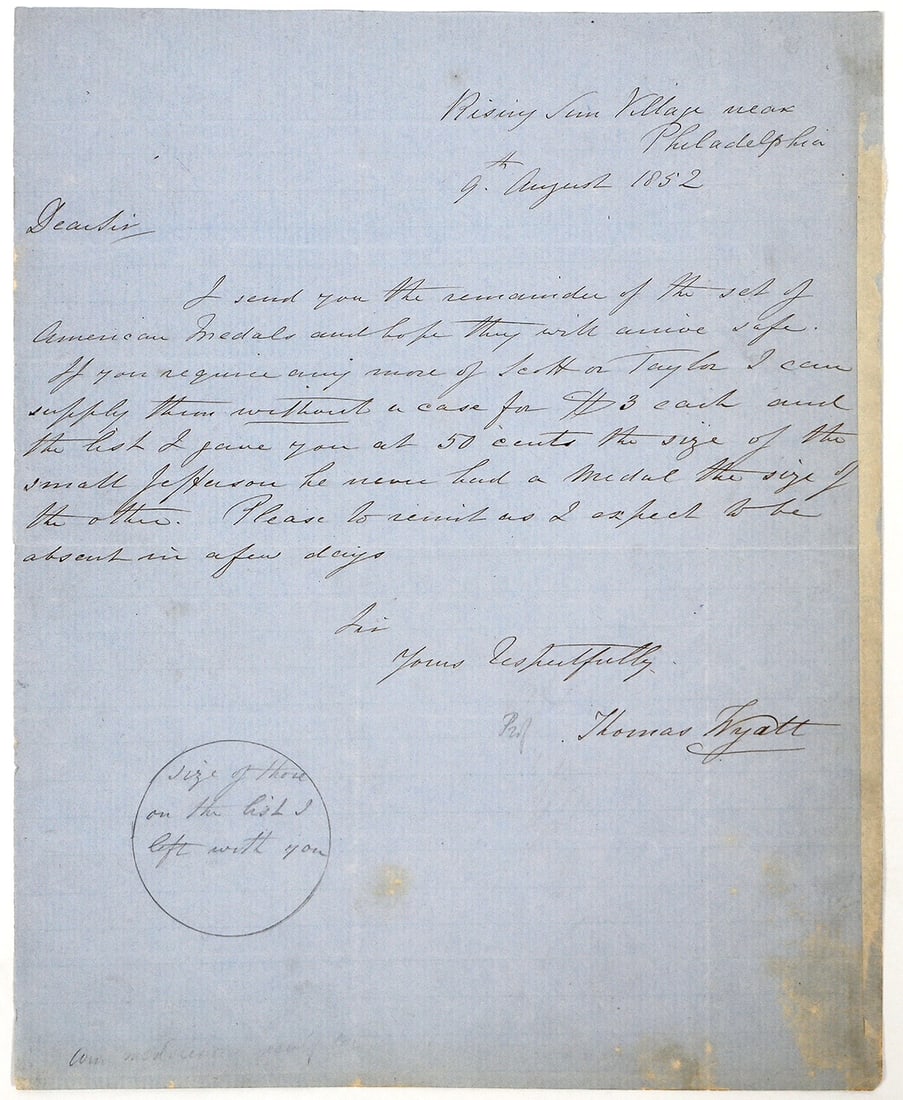 Rising Sun Village near
Philadelphia
9th August 1852
Dear Sir
I send you the remainder of the set of
American Medals and hope they will arrive safe.
If you require any more of Scott or Taylor I can
supply them without a case for $3 each and
the list I gave you at 50 cents the size of the
small Jefferson he never had a Medal the size of
the other. Please to remit as I expect to be
absent in a few days
Sir
Yours Respectfully
Prof Thomas Wyatt
size of those
on the list I
left with you